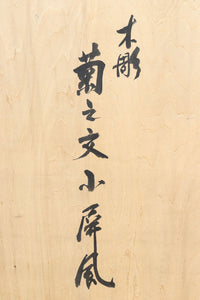 木彫
菊之文小屏風